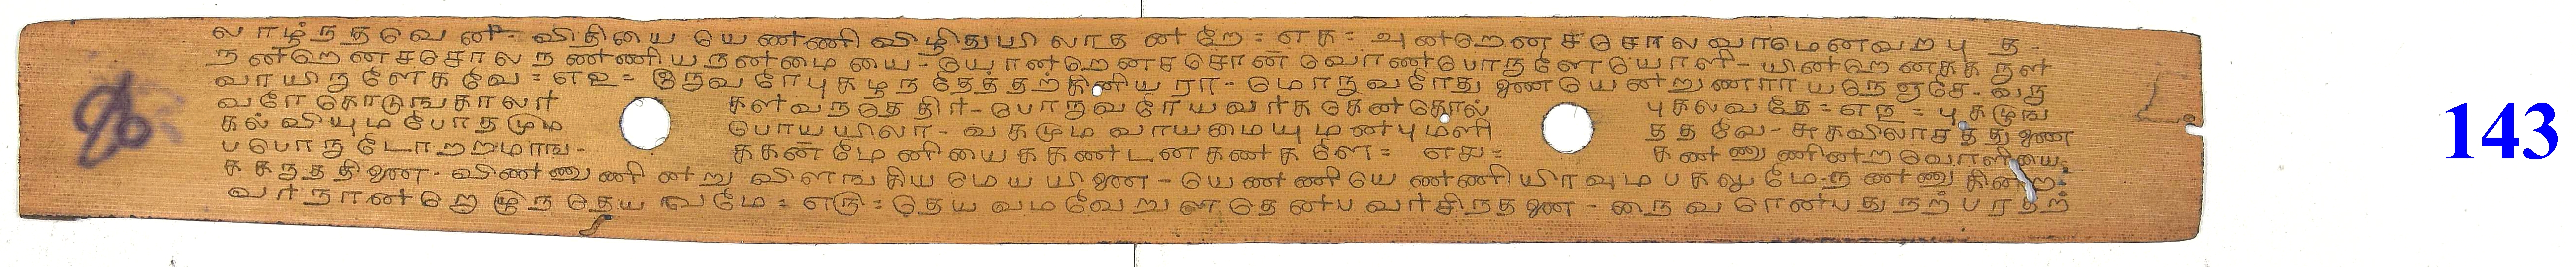 லாழ்ந்தவேன்- விதியை யெண்ணி விழிதுயிலாதன்றே = எக = அன்றெனச்சொலவாமெனவற்பு த-
நன்றெனச்சொல நண்ணிய நன்மையை- யொன்றெனச்சொன வொண்பொருளேயொளி- யின்றெனக்கருள்
வாயிருளேகவே = எஉ = இருவரேபுகழ்ந்தேத்தற்கினியரா- மொருவரோது ணையென்றுணராய்நெஞ்சே- வரு
வரே கொடுங்காலர் கள்வந்தெதிர்- பொருவரேயவர்க்கென்கொல் புகலவதே = எ௩ = புகடுங்
கல்வியும்போதமும் பொய்யிலா- வகமும் வாய்மையுமன்புமளி த்தவே- சுகவிலாசத்துணை
ப்பொருடோற்றமாங்- ககன்மேனியைக்கண்டனகண்களே = எ௪ = கண்ணுணின்றவொளியை
க்கருத்தினை- விண்ணுணின்று விளங்கிய மெய்யினை- யெண்ணியெண்ணியிரவும்பகலுமே- நண்ணுகின்ற
வர்நான்றொழுந்தெய்வமே = எ௫ = தெய்வம்வேறுளதென்பவர்சிந்தனை- நைவரென்பதுநற்பரதற்
143